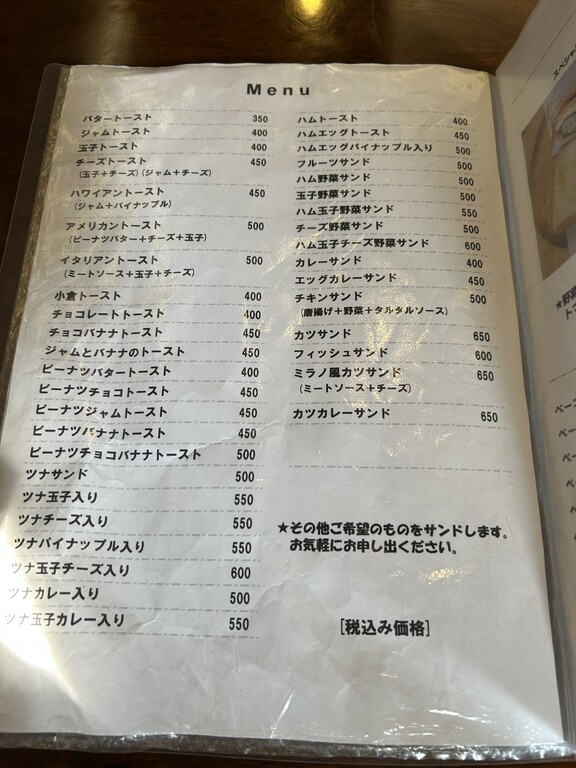 Menu
バタートースト 350
ジャムトースト 400
玉子トースト 400
チーズトースト 450
(玉子+チーズ)(ジャム+チーズ)
ハワイアントースト 450
(ジャム+パイナップル)
アメリカントースト 500
(ピーナツバター+チーズ+玉子)
イタリアントースト 500
(ミートソース+玉子+チーズ)
小倉トースト 400
チョコレートトースト 400
チョコバナナトースト 450
ジャムとバナナのトースト 450
ピーナツバタートースト 400
ピーナツチョコトースト 450
ピーナツジャムトースト 450
ピーナツバナナトースト 450
ピーナツチョコバナナトースト 500
ツナサンド 500
ツナ玉子入り 550
ツナチーズ入り 550
ツナパイナップル入り 550
ツナ玉子チーズ入り 600
ツナカレー入り 500
ツナ玉子カレー入り 550
ハムトースト 400
ハムエッグトースト 450
ハムエッグパイナップル入り 500
フルーツサンド 500
ハム野菜サンド 500
玉子野菜サンド 500
ハム玉子野菜サンド 550
チーズ野菜サンド 500
ハム玉子チーズ野菜サンド 600
カレーサンド 400
エッグカレーサンド 450
チキンサンド 500
(唐揚げ+野菜+タルタルソース)
カツサンド 650
フィッシュサンド 600
ミラノ風カツサンド 650
(ミートソース+チーズ)
カツカレーサンド 650
★その他ご希望のものをサンドします。
お気軽にお申し出ください。
[税込み価格]
スペシャ
★野菜
ト
ベー
ベー
ベ